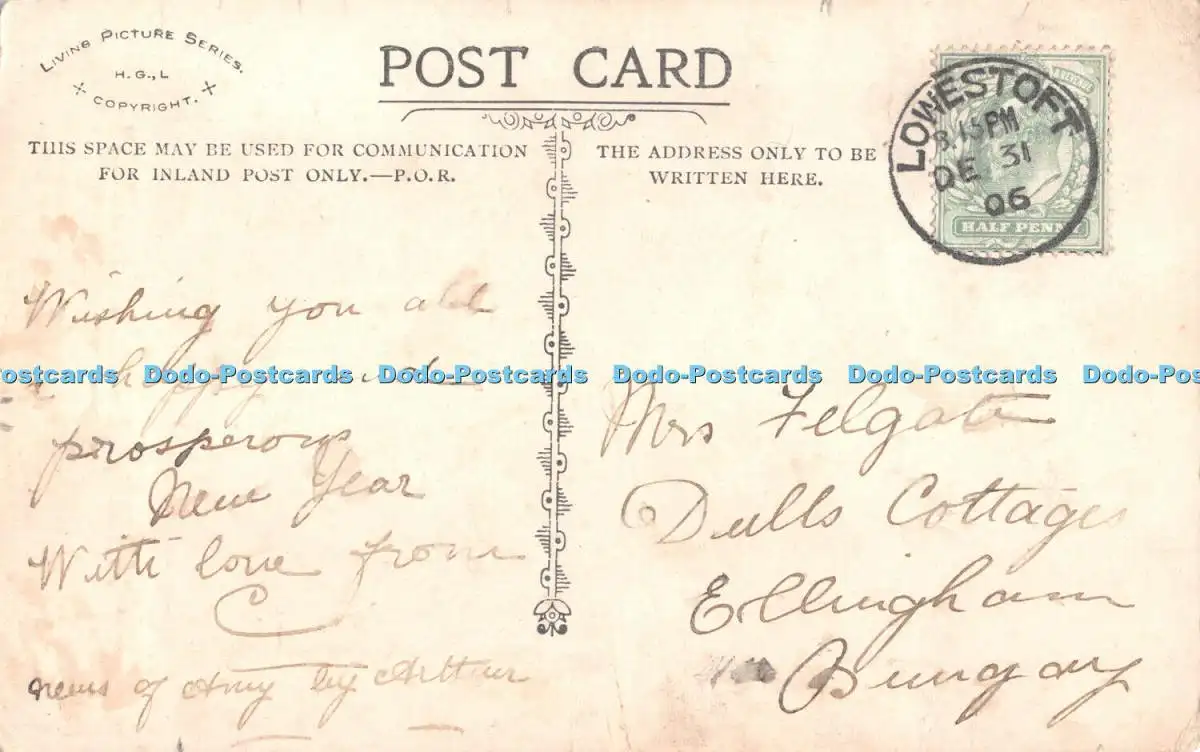 LIVING PICTURE SERIES.
H. G., L
COPYRIGHT.
POST CARD
THIS SPACE MAY BE USED FOR COMMUNICATION
FOR INLAND POST ONLY.—P.O.R.
THE ADDRESS ONLY TO BE
WRITTEN HERE.
LOWESTOFT
8.15PM
DE 31
06
HALF PENNY
Wishing you all
a happy
prosperous
New Year
With love from
C
news of Amy by Arthur
ostcards Dodo-Postcards Dodo-Postcards Dodo-Postcards Dodo-Postcards Dodo-Pos
Mrs Felgate
Dulls Cottages
Ellingham
Bungay